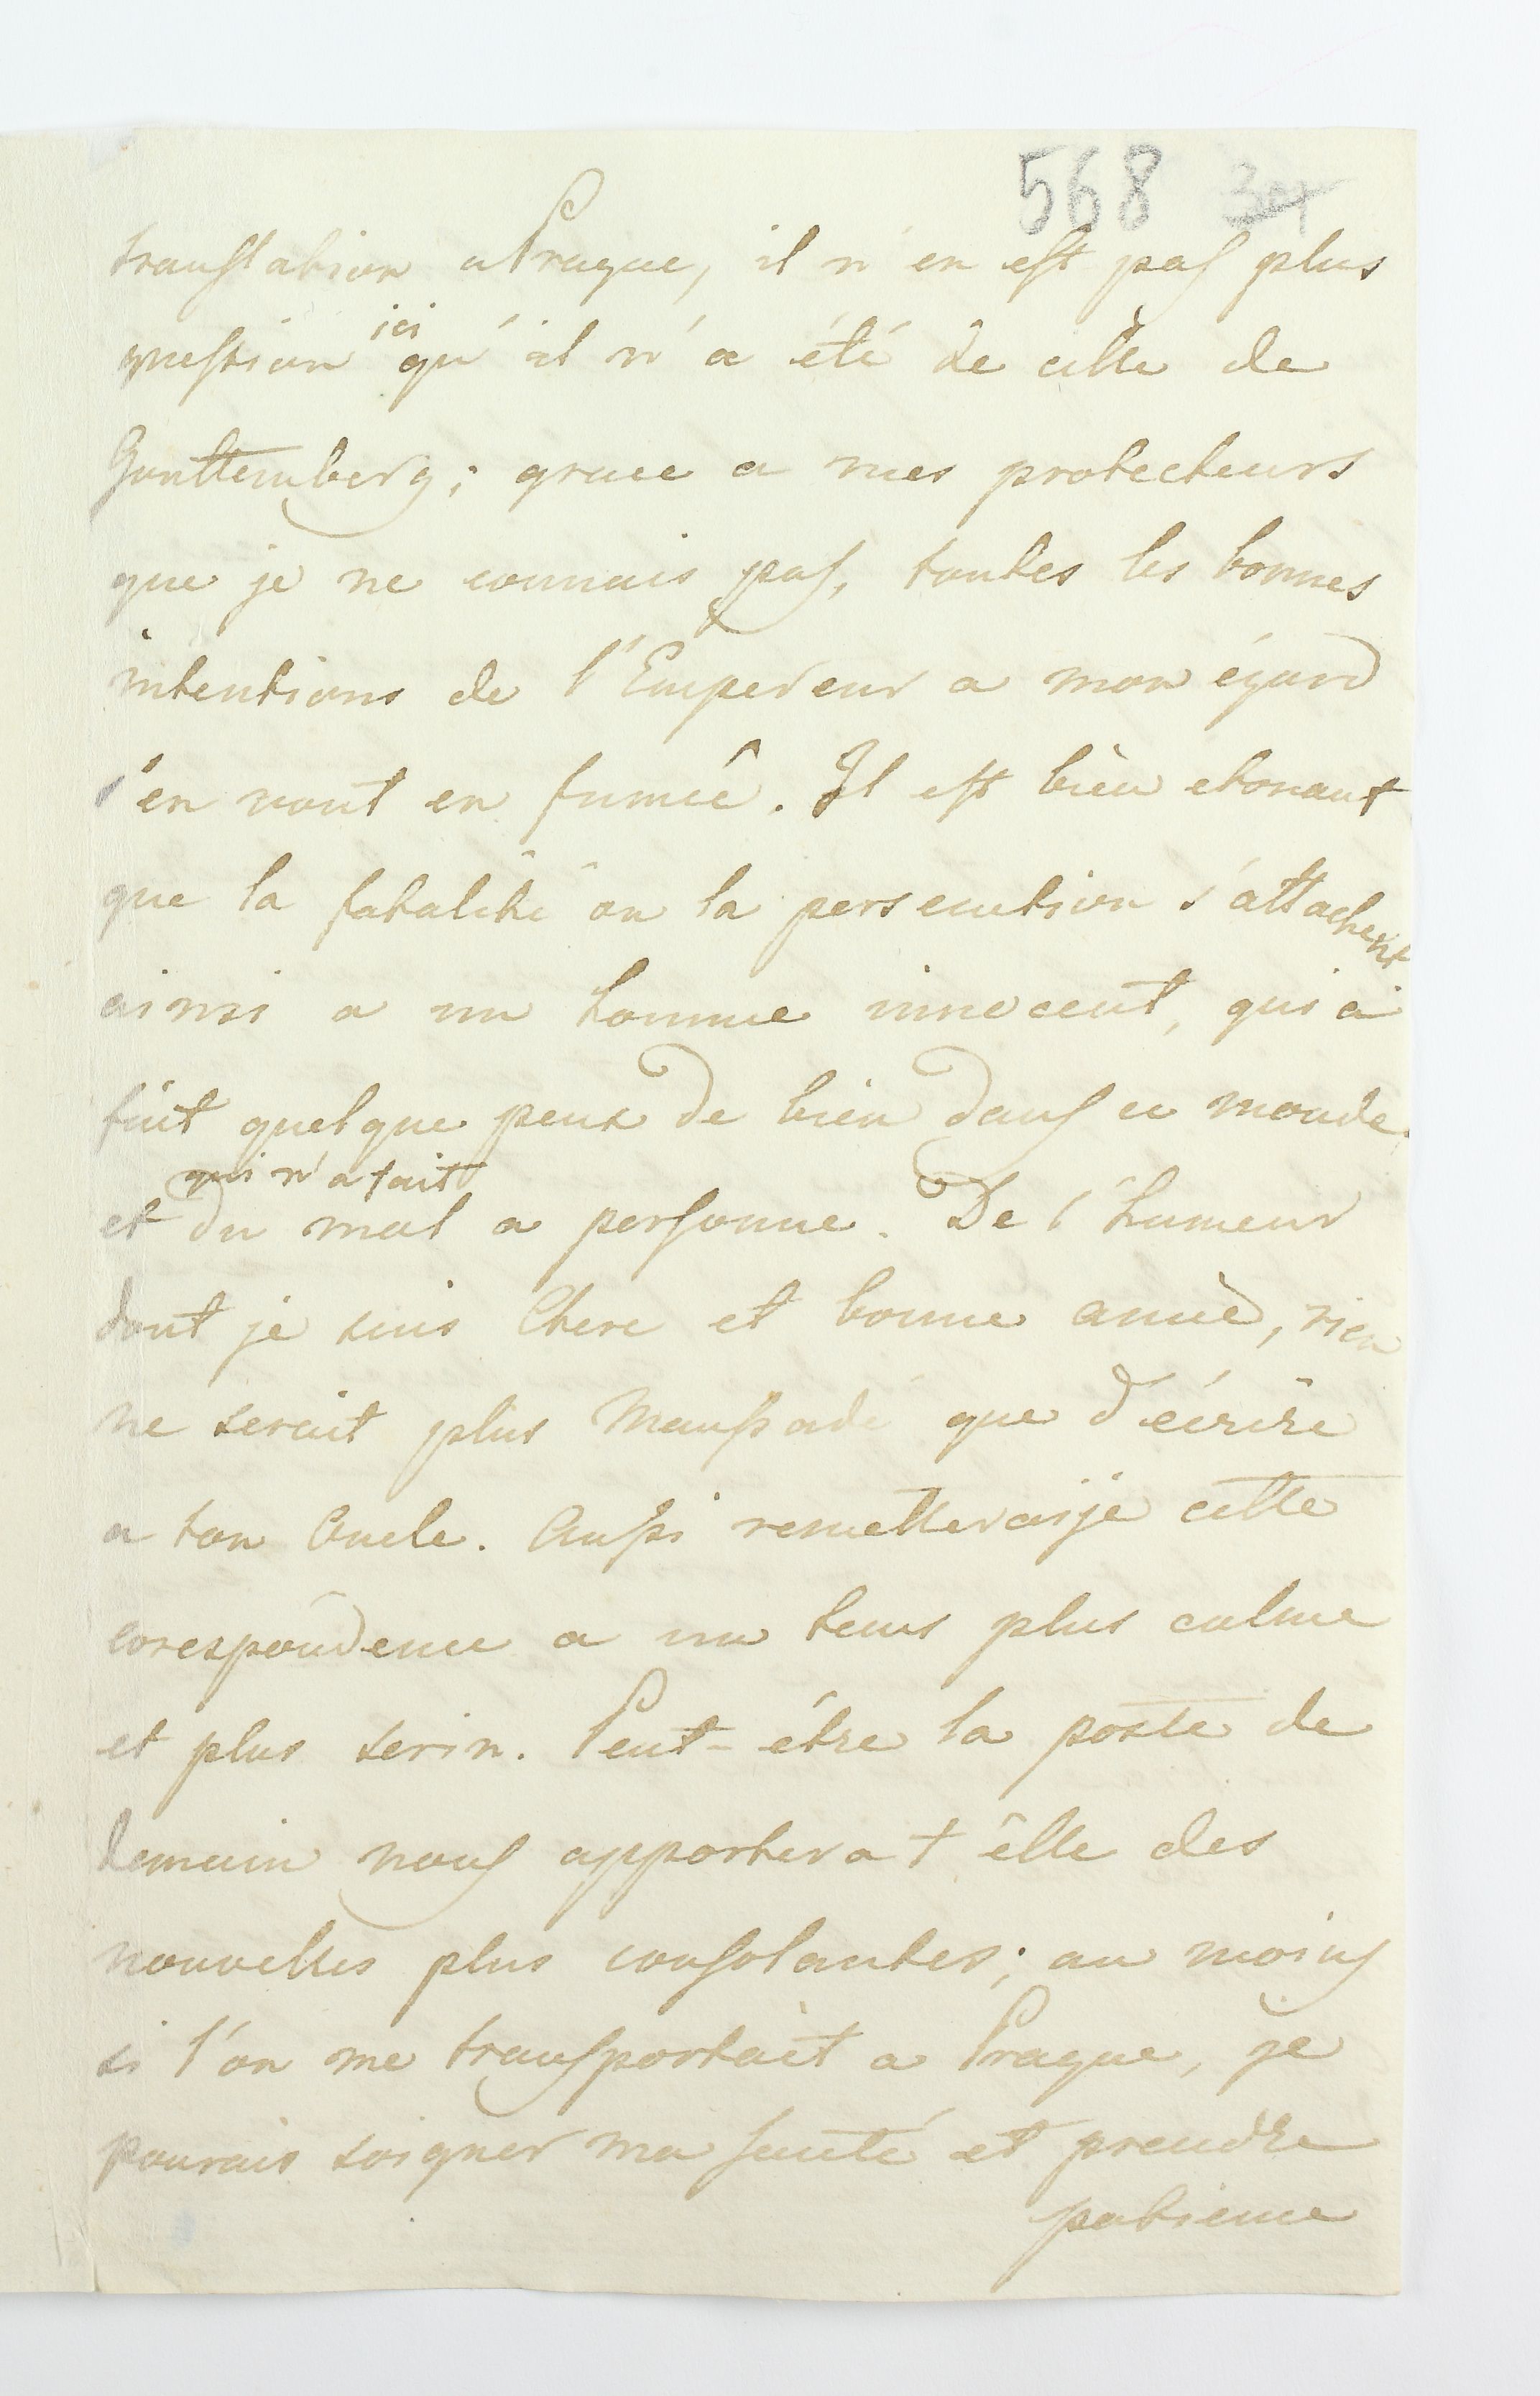 568 301
translation a Prague, il n'en est pas plus
question ici qu'il n'a été de celle de
Gunttemberg; grace a mes protecteurs
que je ne connais pas, toutes les bonnes
intentions de l'Empereur a mon égard
s'en vont en fumée. Il est bien etonant
que la fatalité ou la persecution s'attachent
ainsi a un homme innocent, qui a
fait quelque peux de bien dans ce monde.
et qui n'a fait du mal a personne. De l'humeur
dont je suis Chere et bonne amie, rien
ne serait plus Maussade que d'écrire
a ton Oncle. Aussi remetteraije cette
corespondence a un tems plus calme
et plus serin. Peut-être la poste de
demain nous apportera t elle des
nouvelles plus consolantes; au moins
si l'on me transportait a Prague, je
pourais soigner ma santé et prendre
patience